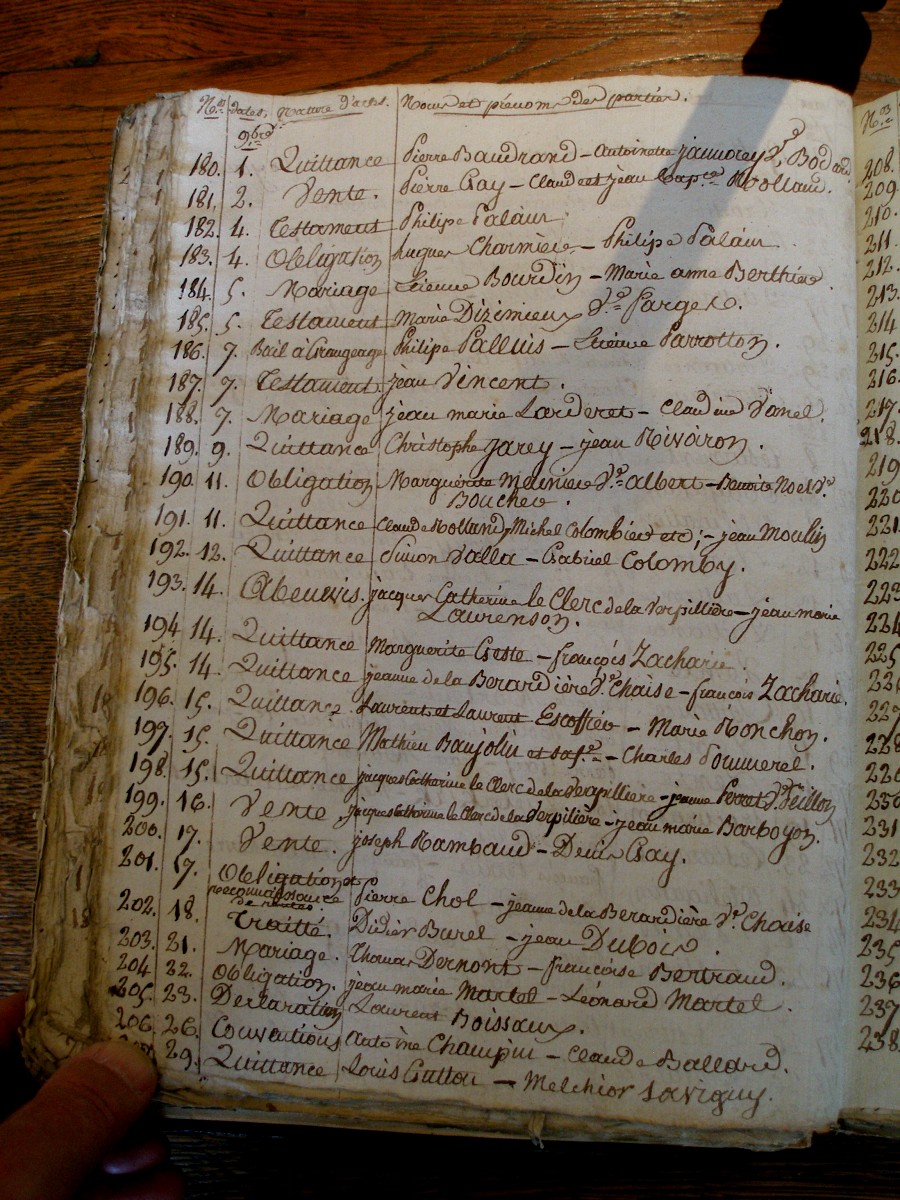 N.os Dates, Nature d'actes. Noms et prénoms des parties.
9.bre
180. 1. Quittance Pierre Baudrand - Antoinette Jamorey V.e Bodard
181. 2. Vente. Pierre Gay - Claude et jean Rolland.
182. 4. Testament Philipe Palain.
183. 4. Obligation hugues Charmiere - Philipe Palain
184. 5. Mariage Etienne Bourdin - Marie anne Berthier
185. 5. Testament Marie Dizimieux V.e Farges.
186. 7. Bail à Grangeage Philipe Palluis - Etienne Parrotton.
187. 7. Testament jean Vincent.
188. 7. Mariage jean marie Larderet - Claudine Vanel.
189. 9. Quittance Christophe jarey - jean Rivoiron.
190. 11. Obligation Marguerite Meunier V.e albert - Benoite Noel V.e
Boucher.
191. 11. Quittance Claude Rolland, Michel Colombier etc; - jean Moulin
192. 12. Quittance Simon Valla - Gabriel Colomby.
193. 14. Abenevis. jacques Catherine le Clerc de la Verpilliere - jean marie
Laurenson.
194 14. Quittance Marguerite Geste - françois Zacharie.
195. 14. Quittance jeanne de la Berardière V.e Chaise - francois Zacharie.
196. 15. Quittance. Laurent et Laurent Escoffier - Marie Ronchon.
197. 15. Quittance Mathieu Baujolin et sa f.e - Charles Pommerel.
198. 15. Quittance jacques Catherine le Clerc de la Verpilliere - jeanne Perret V.e Veillon
199. 16. Vente jacques Catherine le Clerc de la Verpilière - jean marie Barboyon.
200. 17. Vente. joseph Rambaud - Denis Gay.
201. 17. Obligation et
reconnaissance
de rentes. Pierre Chol - jeanne de la Berardière V.e Chaise
202. 18. Traitté. Didier Burel - jean Dubois.
203. 21. Mariage. Thomas Dernont - francoise Bertraud.
204 22. Obligation. jean marie Martel - Léonard Martel
205. 23. Declaration Laurent Boissaux.
206. 26. Conventions antoine Champin - Claude Ballard.
29. Quittance Louis Guttou - Melchior Savigny.
N.os
208.
209
210.
211.
212.
213.
214
215.
216.
217.
218.
219
220
221.
222
223
224
225
226
227
228
229
230
231
232
233
234
235
236
237
238